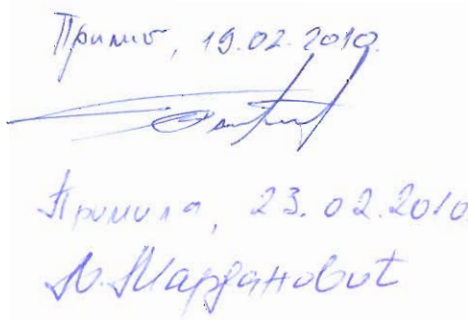 Примио, 19.02.2010.
Примила, 23.02.2010
М. Мардановић